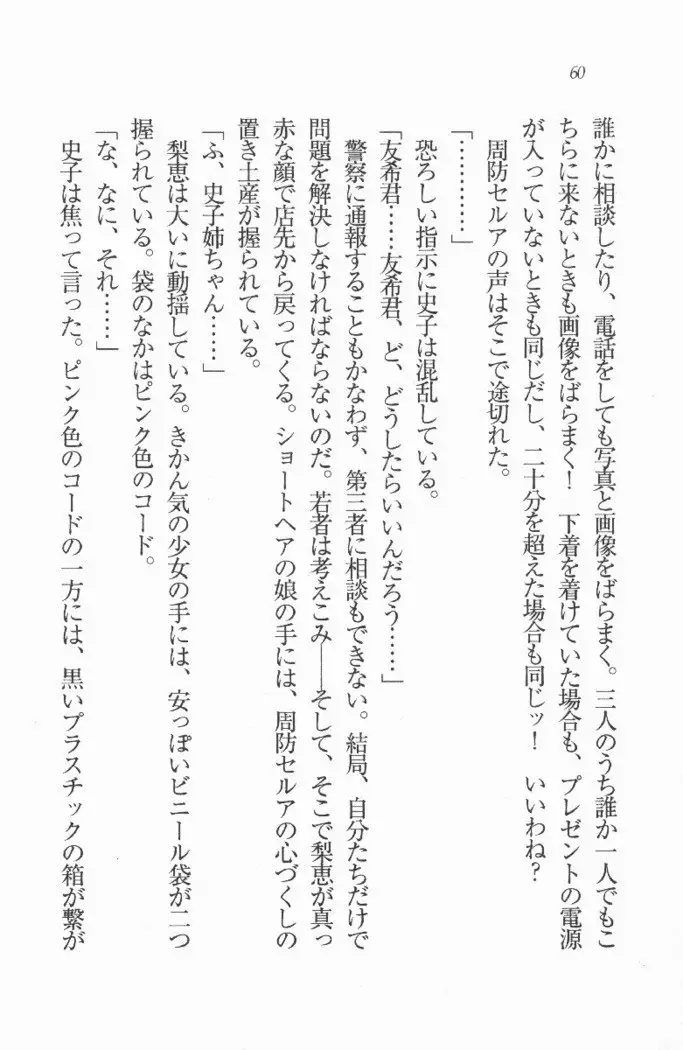 60
誰かに相談したり、電話をしても写真と画像をばらまく。三人のうち誰か一人でもこ
ちらに来ないときも画像をばらまく！　下着を着けていた場合も、プレゼントの電源
が入っていないときも同じだし、二十分を超えた場合も同じッ！　いいわね？
周防セルアの声はそこで途切れた。
「…………」
恐ろしい指示に史子は混乱している。
「友希君……友希君、ど、どうしたらいいんだろう……」
警察に通報することもかなわず、第三者に相談もできない。結局、自分たちだけで
問題を解決しなければならないのだ。若者は考えこみ――そして、そこで梨恵が真っ
赤な顔で店先から戻ってくる。ショートヘアの娘の手には、周防セルアの心づくしの
置き土産が握られている。
「ふ、史子姉ちゃん……」
梨恵は大いに動揺している。きかん気の少女の手には、安っぽいビニール袋が二つ
握られている。袋のなかはピンク色のコード。
「な、なに、それ……」
史子は焦って言った。ピンク色のコードの一方には、黒いプラスチックの箱が繋が